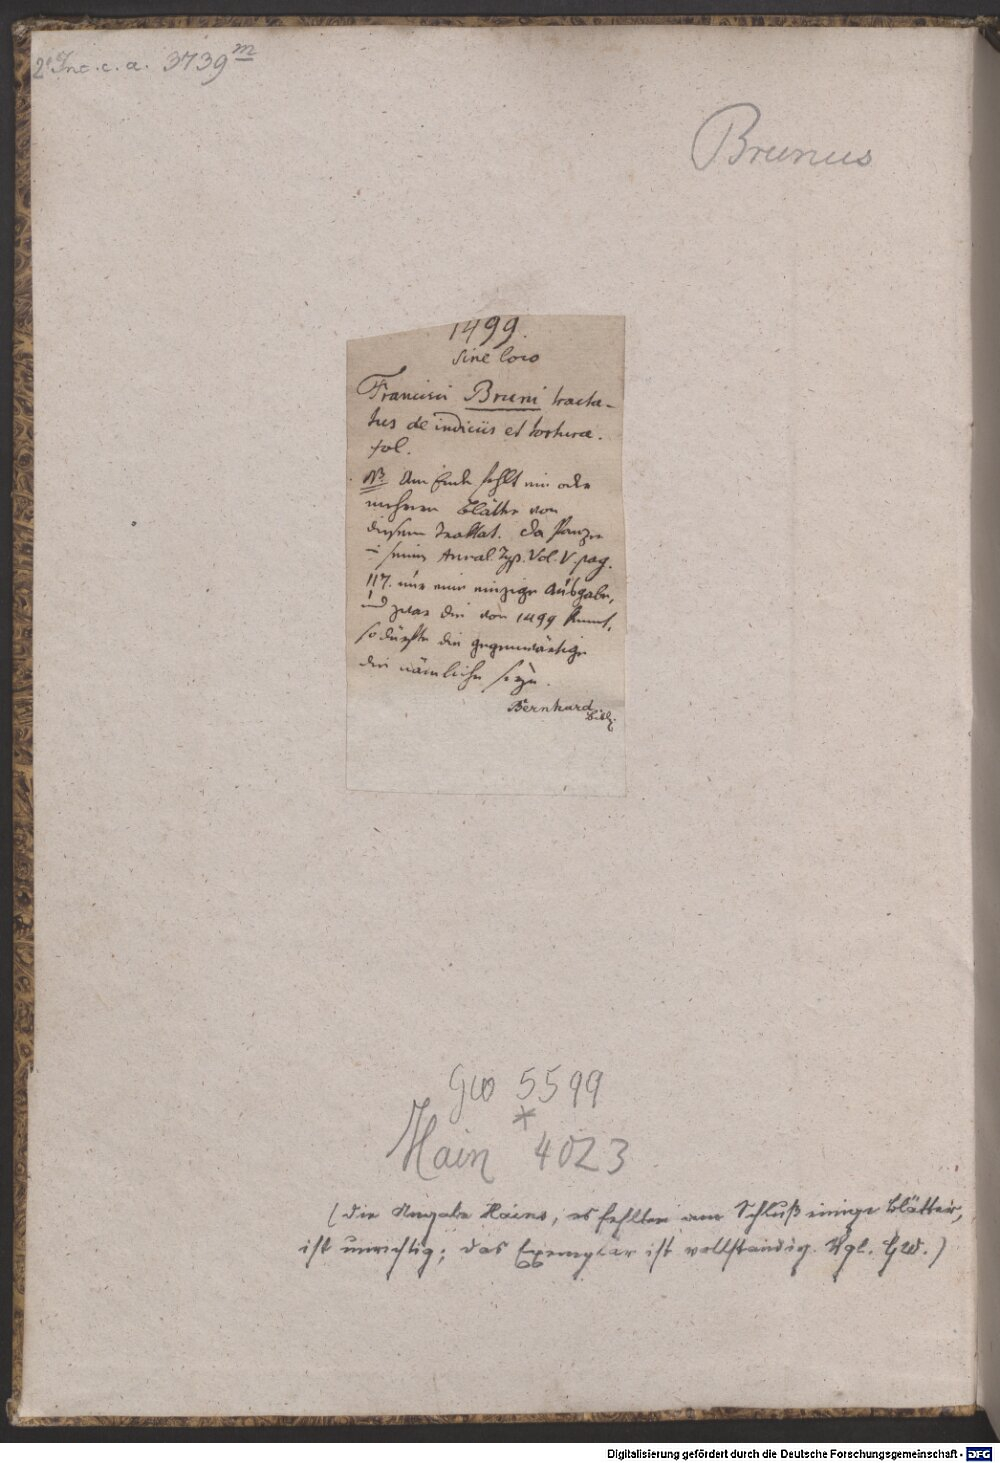 2° Inc. c. a. 3739 m
Brunus
1499.
Sine loco
Francisci Bruni tracta-
tus de indiciis et tortura.
fol.
NB Am Ende fehlt ein oder
mehrere Blätter von
diesem Traktat. Da Panzer
in seinen Annal. Typ. Vol. V. pag.
117. nur eine einzige Ausgabe,
und zwar die von 1499 kennt,
so dürfte die gegenwärtige
die nämliche seyn.
Bernhard Bibl.
GW 5599
*
Hain 4023
(Die Angabe Hains, es fehlten am Schluß einige Blätter,
ist unrichtig; das Exemplar ist vollständig. Vgl. GW.)
Digitalisierung gefördert durch die Deutsche Forschungsgemeinschaft - DFG